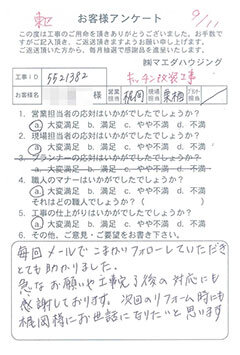 東区 お客様アンケート 9/11
この度は工事のご用命を頂きありがとうございました。お手数で
すがご記入頂き、ご返送頂きますようお願い申し上げます。
ご返送頂いた方から、毎月抽選で感謝品を進呈いたします。
㈱マエダハウジング
工事ID 5521382 キッチン改装工事
お客様名 様 営業担当 梶岡 現場担当 ﾌﾟﾗﾝﾅｰ担当
1. 営業担当者の応対はいかがでしたでしょうか?
a 大変満足 b. 満足 c. やや不満 d. 不満
2. 現場担当者の応対はいかがでしたでしょうか?
a 大変満足 b. 満足 c. やや不満 d. 不満
3. プランナーの応対はいかがでしたでしょうか?
a. 大変満足 b. 満足 c. やや不満 d. 不満
4. 職人のマナーはいかがでしたでしょうか?
a 大変満足 b. 満足 c. やや不満 d. 不満
それはどの職人でしょうか?( )
5. 工事の仕上がりはいかがでしたでしょうか?
a 大変満足 b. 満足 c. やや不満 d. 不満
6. その他、ご意見・ご要望をお書き下さい。
毎回メールでこまかくフォローしていただき
とても助かりました。
急なお願いや工事完了後の対応にも
感謝しております。次回のリフォーム時にも
梶岡様にお世話になりたいと思います